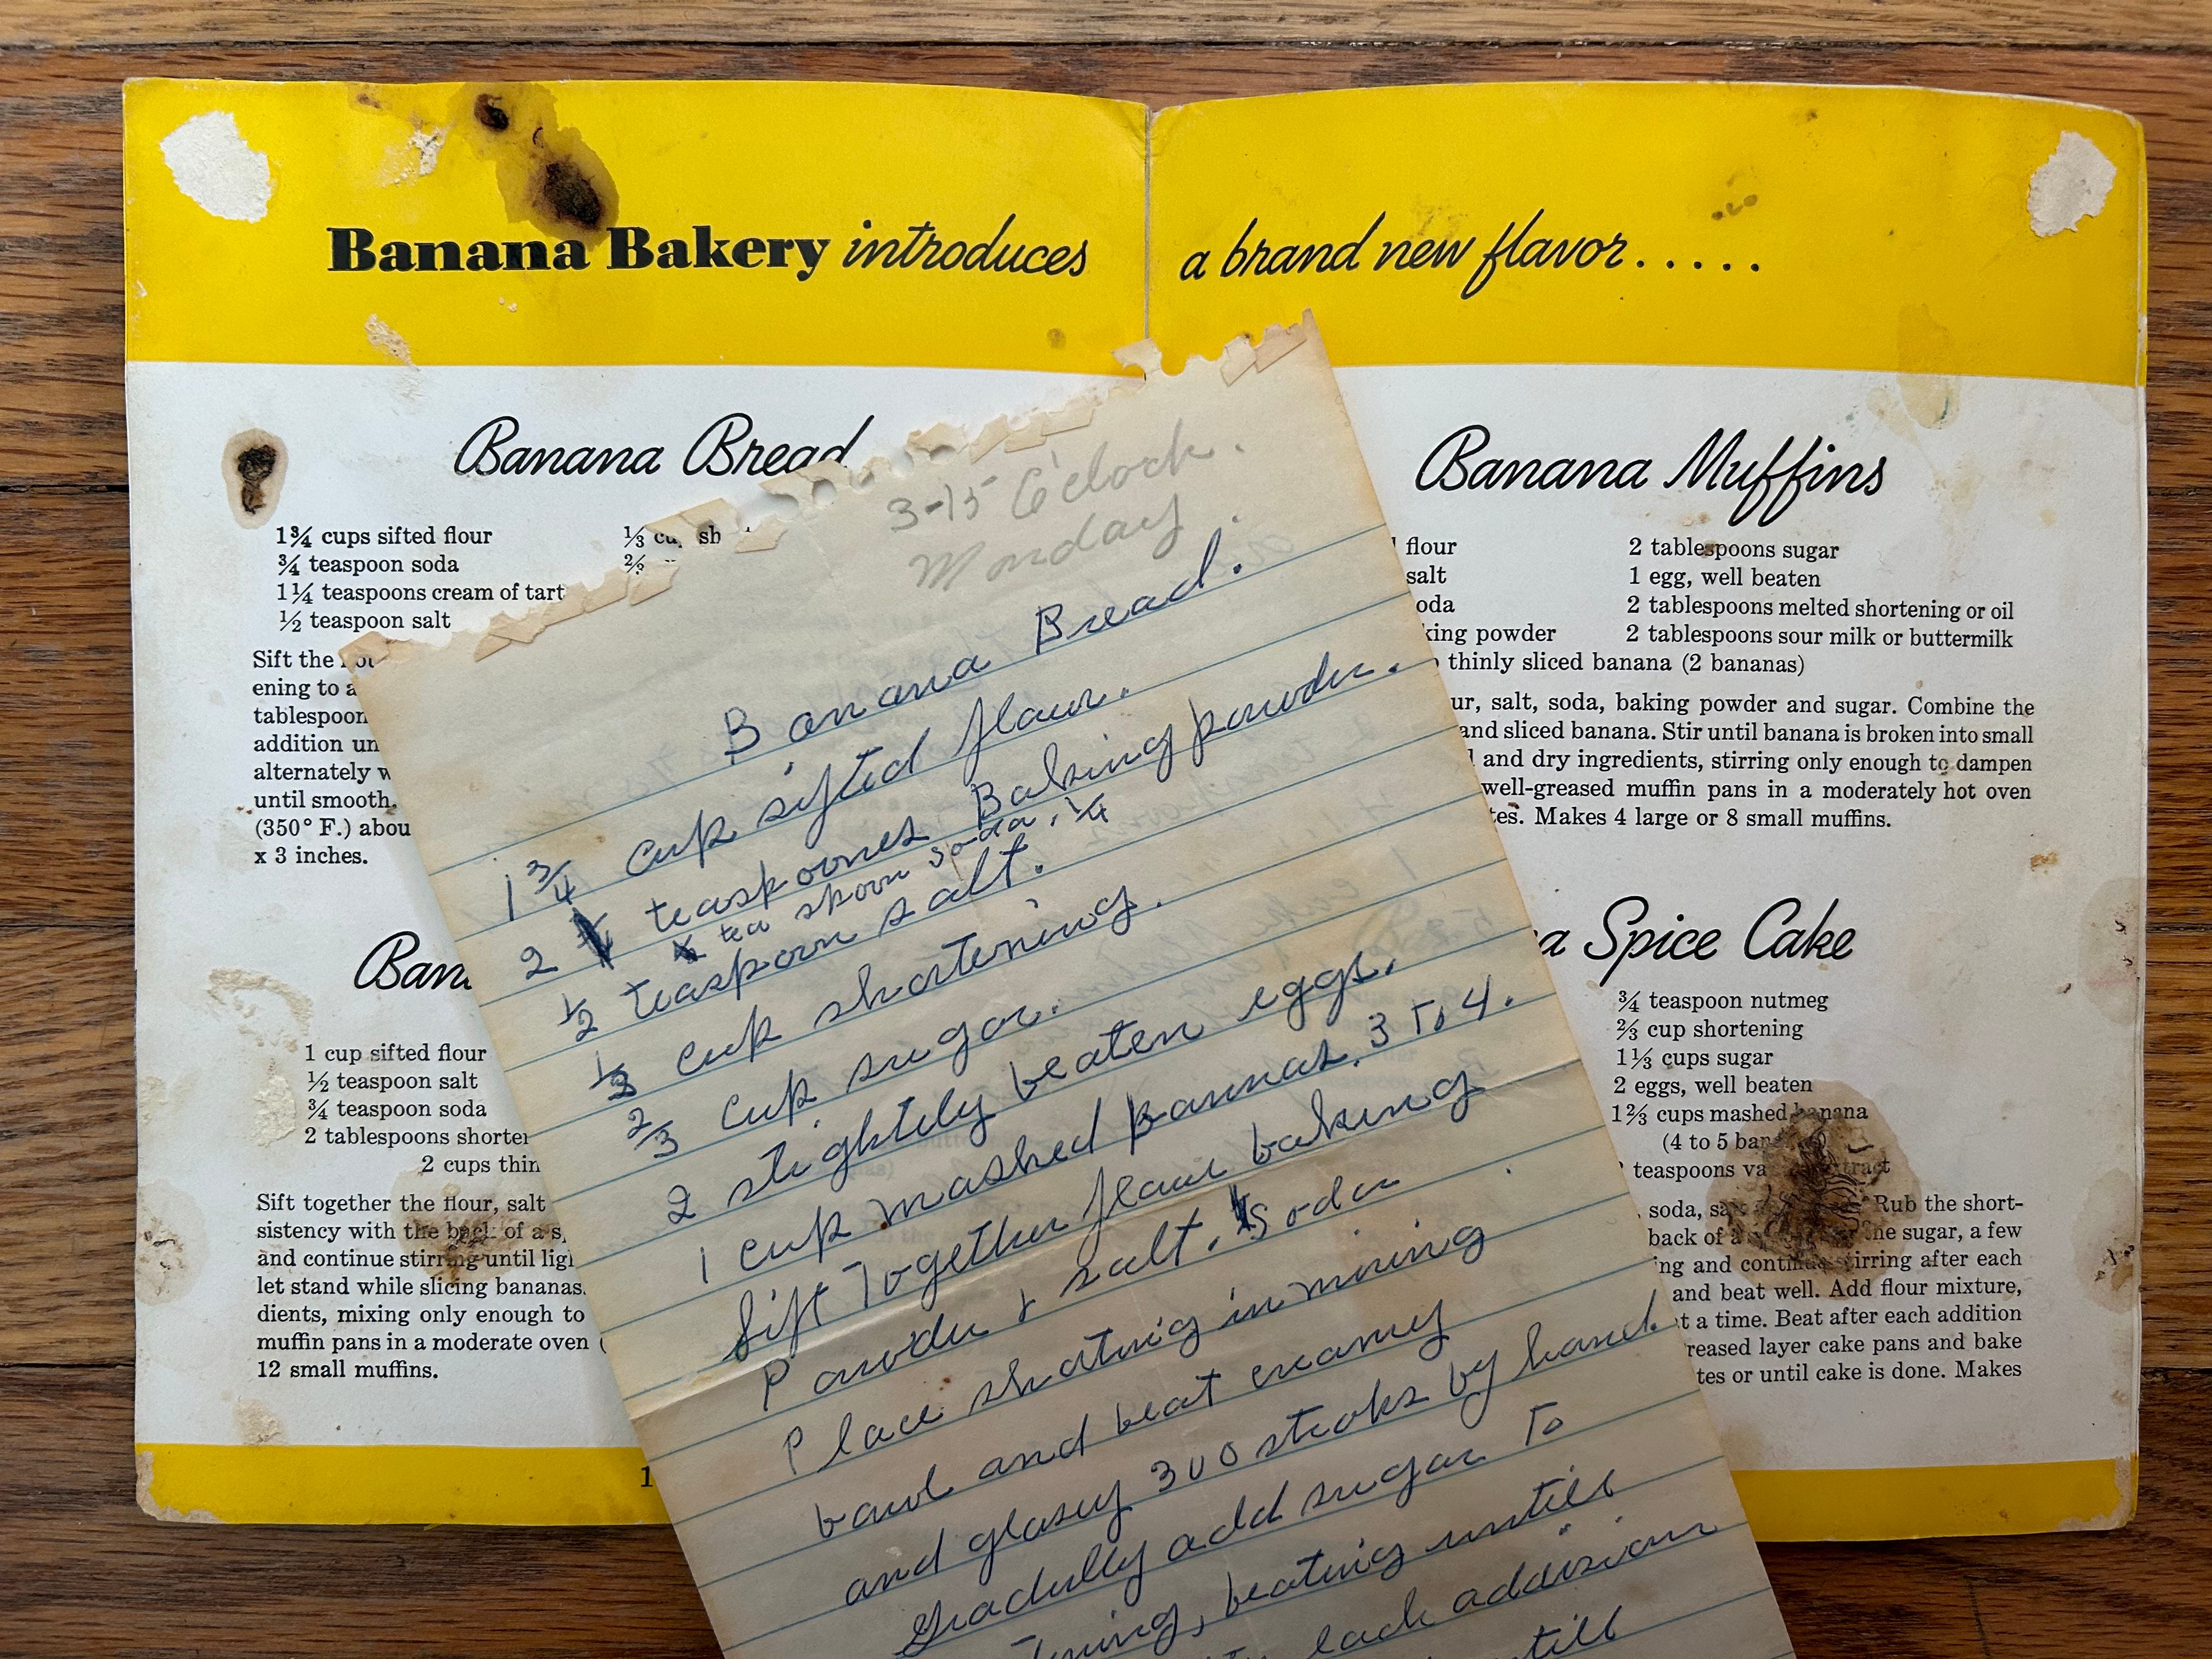 Banana Bakery introduces a brand new flavor.....
Banana Bread
1¾ cups sifted flour
¾ teaspoon soda
1¼ teaspoons cream of tart
½ teaspoon salt
⅓ cu sh
⅔
Sift the
ening to a
tablespoon
addition un
alternately w
until smooth.
(350° F.) abou
x 3 inches.
Ban
1 cup sifted flour
½ teaspoon salt
¾ teaspoon soda
2 tablespoons shorte
2 cups thin
Sift together the flour, salt
sistency with the back of a s
and continue stirring until lig
let stand while slicing bananas.
dients, mixing only enough to
muffin pans in a moderate oven (
12 small muffins.
1
3-15 O'clock.
Monday.
Banana Bread.
1 3/4 cup sifted flour.
2 teaspoones Baking powder.
tea spoon soda, 1/4
1/2 teaspoon salt.
1/3 cup shortening.
2/3 cup sugar.
2 slightely beaten eggs.
1 cup mashed Bannas. 3 To 4.
Sift Together flour baking
Powder & salt. Soda
Place shorting in mixing
bowl and beat creamy
and glasey 300 stroks by hand.
Gradully add sugar To
ning, beating untill
each addision
till
Banana Muffins
flour
salt
oda
king powder
2 tablespoons sugar
1 egg, well beaten
2 tablespoons melted shortening or oil
2 tablespoons sour milk or buttermilk
thinly sliced banana (2 bananas)
ur, salt, soda, baking powder and sugar. Combine the
and sliced banana. Stir until banana is broken into small
and dry ingredients, stirring only enough to dampen
well-greased muffin pans in a moderately hot oven
tes. Makes 4 large or 8 small muffins.
a Spice Cake
¾ teaspoon nutmeg
⅔ cup shortening
1⅓ cups sugar
2 eggs, well beaten
1⅔ cups mashed banana
(4 to 5 ban
teaspoons va tract
soda, sa Rub the short-
back of a the sugar, a few
ing and continue stirring after each
and beat well. Add flour mixture,
t a time. Beat after each addition
reased layer cake pans and bake
tes or until cake is done. Makes